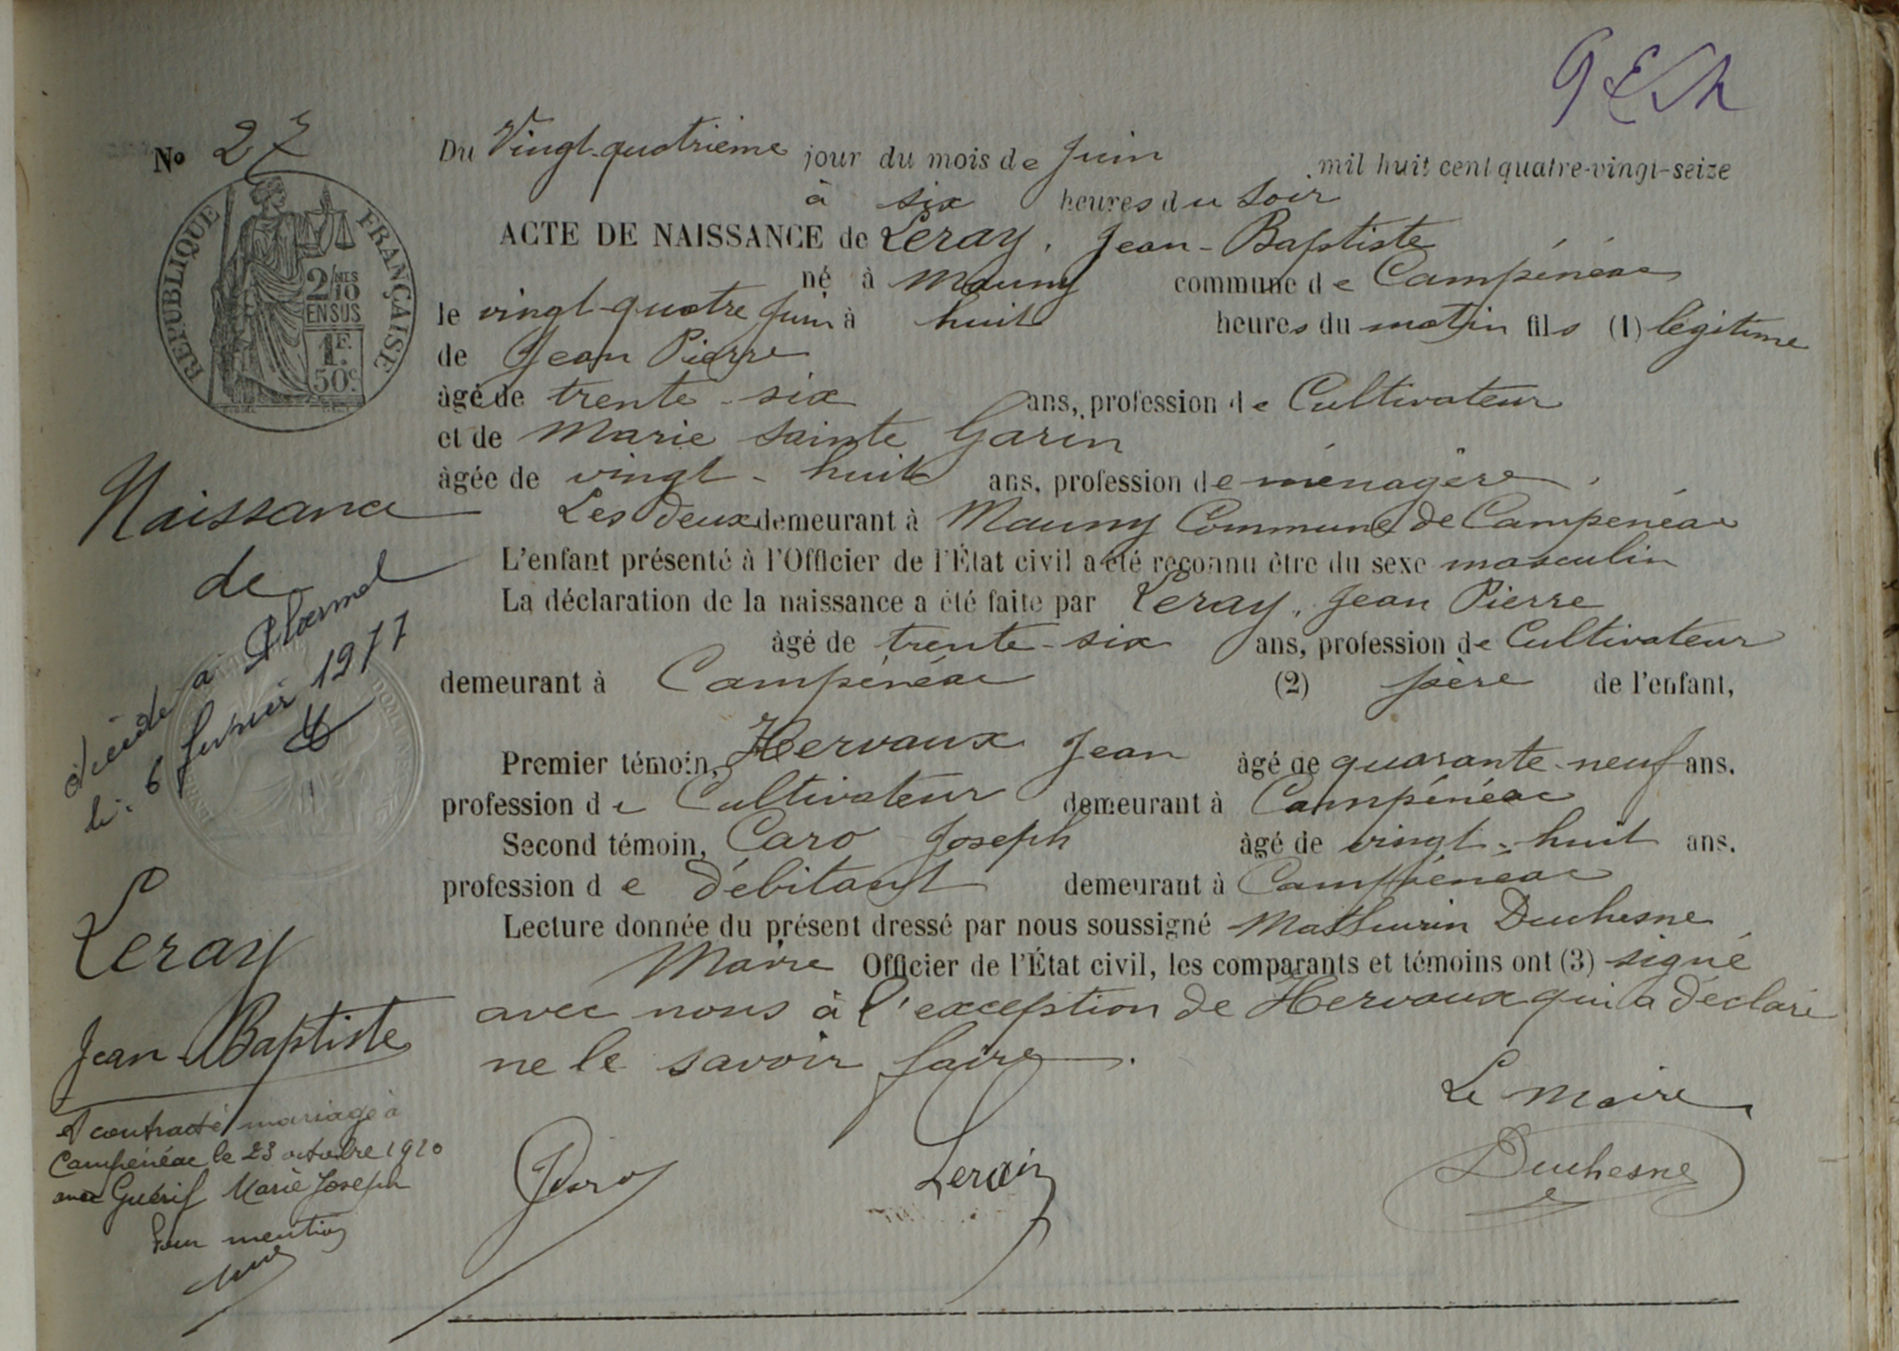 N° 27
RÉPUBLIQUE FRANÇAISE
2/10 MES
EN SUS
1F.
50c.
Du Vingt-quatrième jour du mois de Juin mil huit cent quatre-vingt-seize
à six heures du soir
ACTE DE NAISSANCE de Leray, Jean-Baptiste
né à Mauny commune de Campénéac
le vingt-quatre Juin à huit heures du matin fils (1) légitime
de Jean Pierre
âgé de trente-six ans, profession de Cultivateur
et de Marie Sainte Garin
âgée de vingt-huit ans, profession de ménagère.
Les deux demeurant à Mauny Commune de Campénéac
L'enfant présenté à l'Officier de l'État civil a été reconnu être du sexe masculin
La déclaration de la naissance a été faite par Leray, Jean Pierre
âgé de trente-six ans, profession de Cultivateur
demeurant à Campénéac (2) père de l'enfant,
Premier témoin, Hervaux Jean âgé de quarante-neuf ans.
profession de Cultivateur demeurant à Campénéac
Second témoin, Caro Joseph âgé de vingt-huit ans.
profession de débitant demeurant à Campénéac
Lecture donnée du présent dressé par nous soussigné Mathurin Duchesne
Maire Officier de l'État civil, les comparants et témoins ont (3) signé
avec nous à l'exception de Hervaux qui a déclaré
ne le savoir faire.
Le Maire
Duchesne
Naissance
de
Leray
Jean-Baptiste
Décédé à Ploërmel
le: 6 février 1977
A contracté mariage à
Campénéac le 23 octobre 1920
avec Guérif Marie Joseph
Pour mention